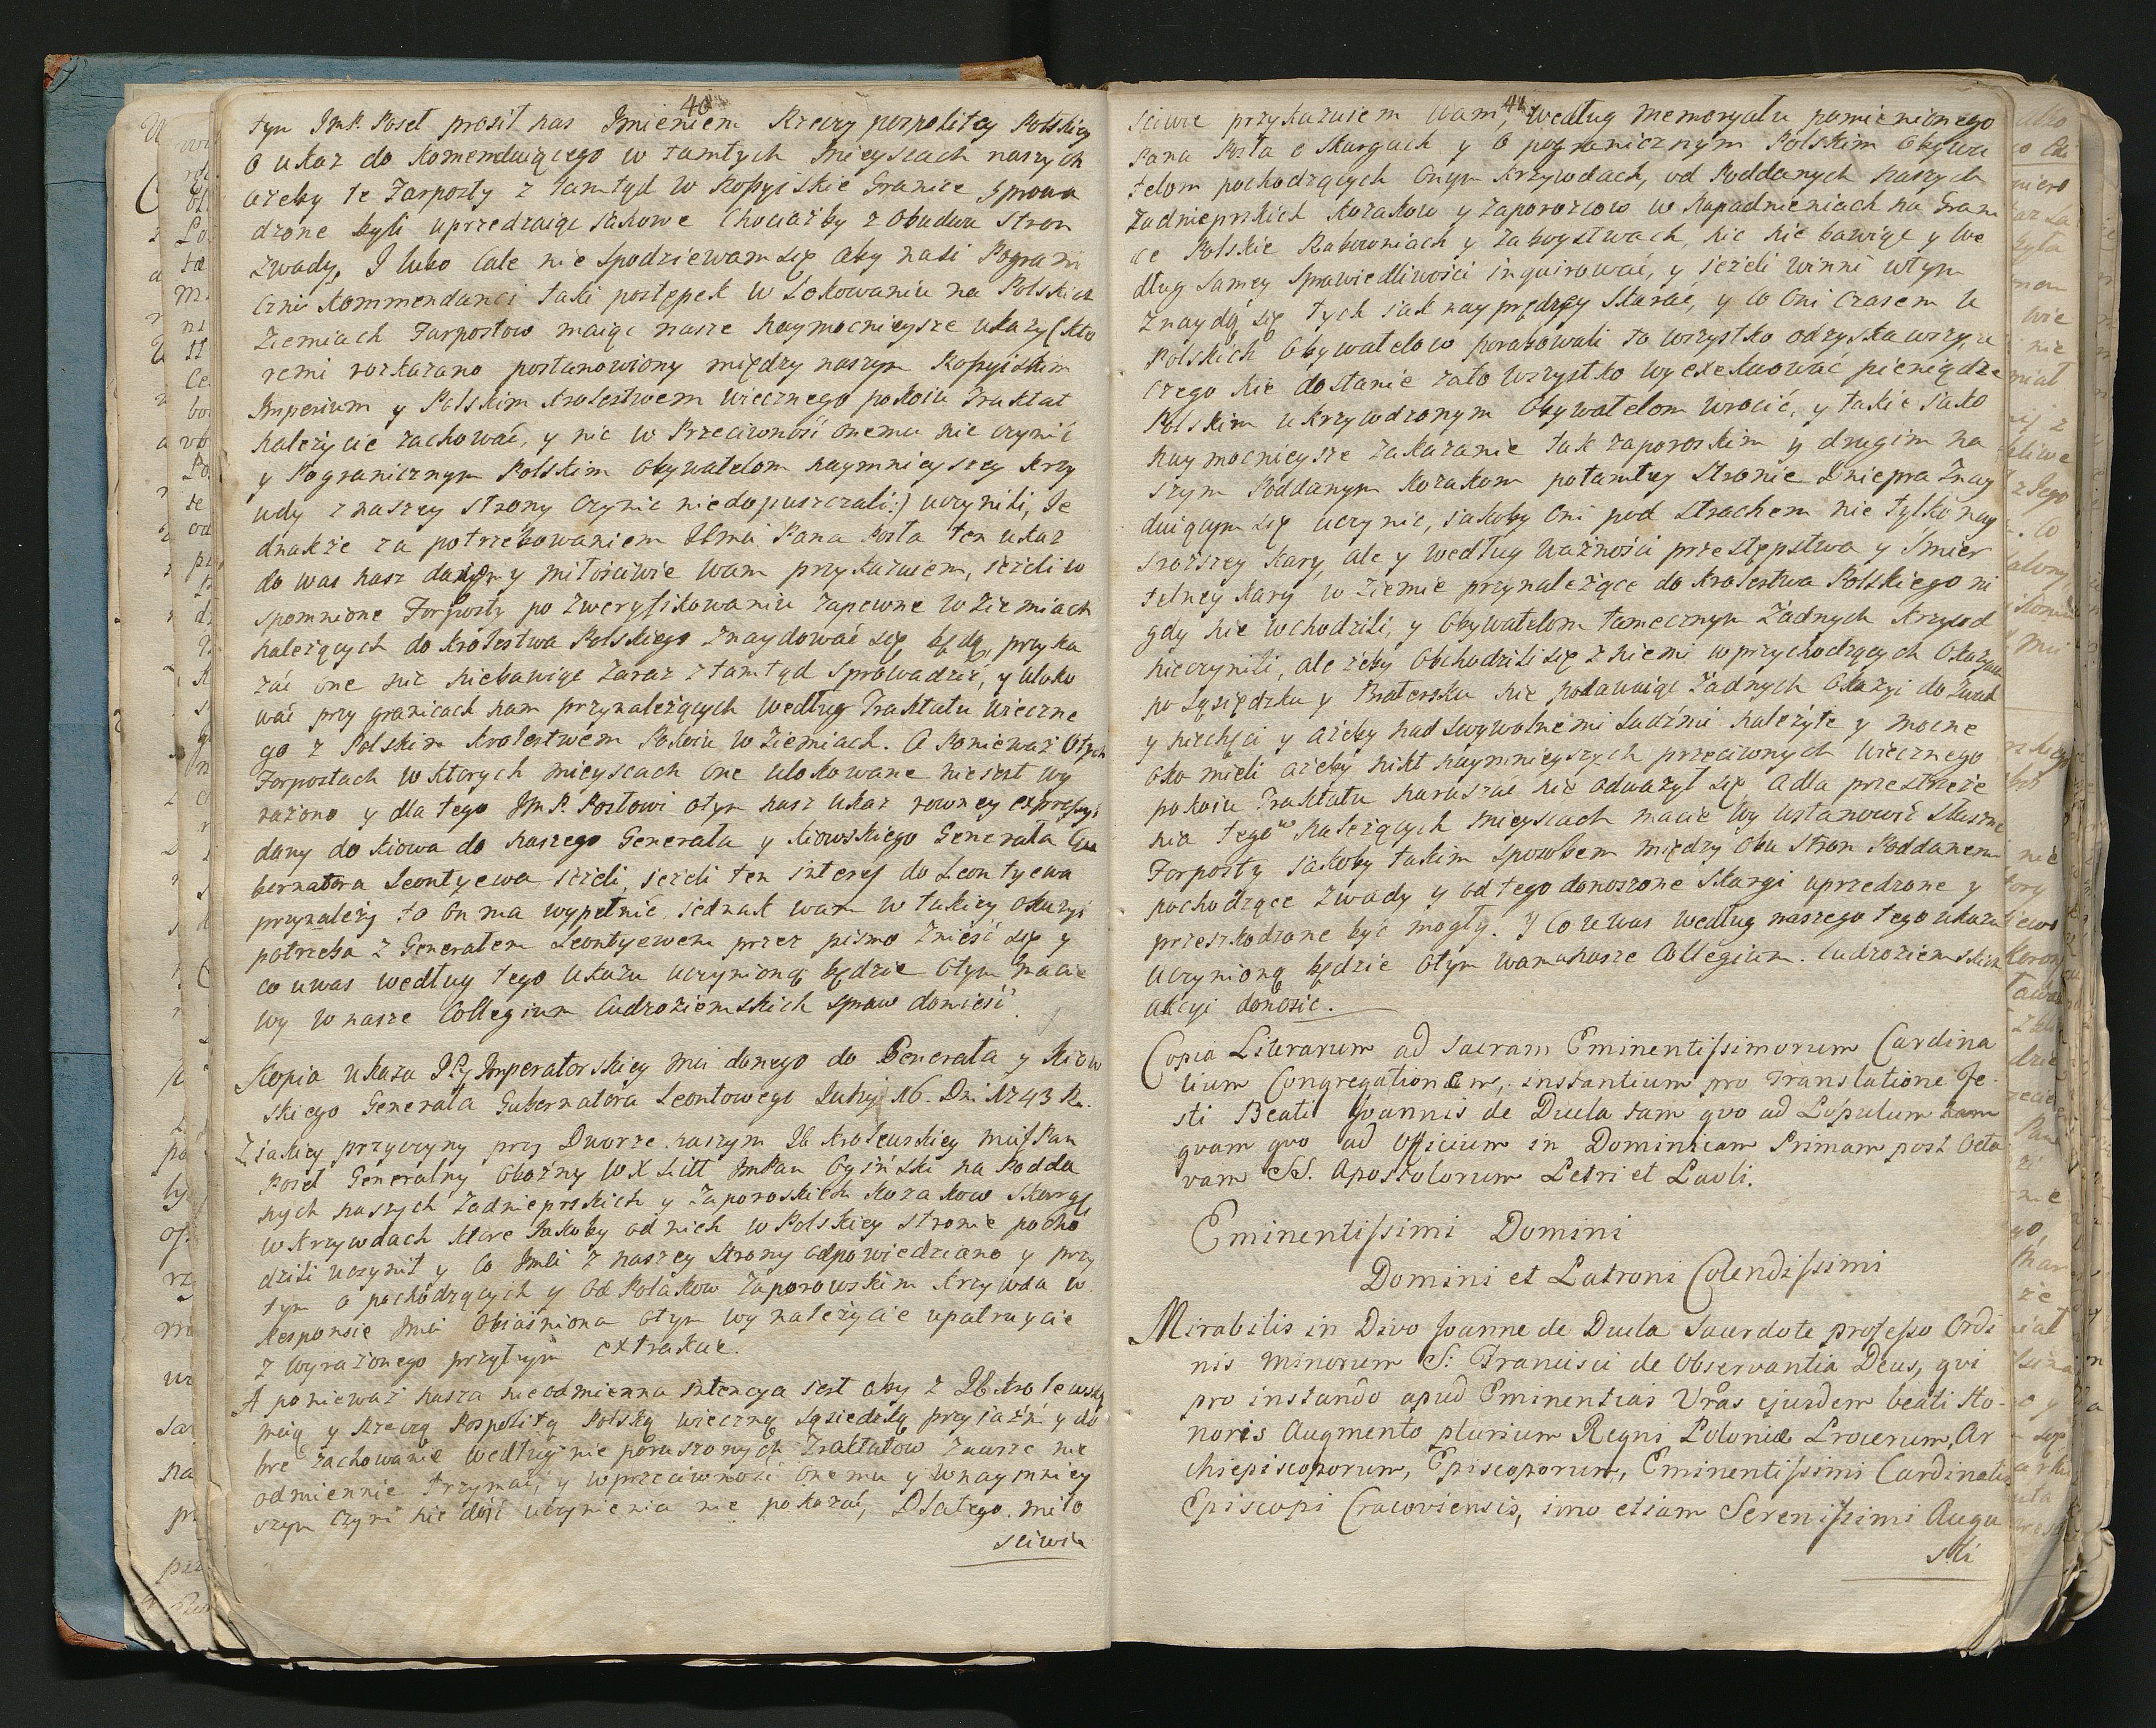 40
tym JmP. Poseł prosił nas Jmieniem Rzeczy pospolitey Polskiey
o ukaz do Komenduiącego w tamtych mieyscach naszych
ażeby te Forposty z tamtąd w Rossyiskie Granice sprowa
dzone byli uprzedzaiąc iakowe chociażby z obudwu stron
zwady, J lubo cale nie spodziewam się aby nasi Pograni
czni Kommendanci taki postępek w Lokowaniu na Polskich
Ziemiach Forpostow maiąc nasze naymocnieysze ukazy (kto
remi rozkazano postanowiony między naszym Rossyiskim
Imperium y Polskim Krolestwem wiecznego pokoiu Traktat
należycie zachować, y nic w Przeciwność onemu nie czynić
y Pogranicznym Polskim obywatelom naymnieyszey krzy
wdy z naszey strony czynić niedopuszczali:) uczynili, Je
dnakże za potrzebowaniem Jmci Pana Posła ten ukaz
do was nasz y miłościwie wam przykazuiem, ieżeli w
spomnione Forposty po zweryfikowaniu zapewne w Ziemiach
należących do Krolestwa Polskiego znaydować się będą, przyka
zać one nic niebawiąc zaraz z tamtąd sprowadzić, y uloko
wać przy granicach nam przynależących według Traktatu wieczne
go z Polskim Krolestwem Pokoiu w Ziemiach. A Ponieważ o tych
Forpostach w ktorych mieyscach one ulokowane nieiest wy
rażono y dla tego JmP. Posłowi o tym nasz ukaz rowney expressyi
dany do Kiowa do naszego Generała y Kiowskiego Generała Gu
bernatora Leontyewa ieżeli, ieżeli ten interes do Leontyewa
przynależy to on ma wypełnić iednak wam w takiey okazyi
potrzeba z Generałem Leontyewem przez pismo znieść się y
co uwas według tego ukazu uczynioną będzie o tym macie
wy w nasze Collegium Cudzoziemskich spraw donieść.
Kopia ukazu Imperatorskiey Mci danego do Generała y Kiow
skiego Generała Gubernatora Leontowego Lutey 16. Dni 1743 R.
Z iakiey przyczyny przy Dworze naszym Jb Krolewskiey Mci Pan
Poseł Generalny Oboźny WX Litt JmPan Ogiński na Podda
nych naszych Zadnieprskich y Zaporoskich Kozakow skargę
w krzywdach ktore iakoby od nich w Polskiey stronie pocho
dzili uczynił y co Jmci z naszey strony odpowiedziano y przy
tym o pochodzących y od Polakow Zaporowskim krzywda w
Responsie Jmci obiaśniona o tym wy należycie upatruycie
z wyrażonego przytym extraktu.
A ponieważ nasza nieodmienna intencya iest aby z Jb Krolewską
Mcią y Rzeczą Pospolitą Polską wieczną sąsiedzką przyiaźń y do
bre zachowanie według nie poruszonych Traktatow zawsze nie
odmiennie trzymać, y w przeciwność onemu y w naymniey
szym czym nie dość uczynienia nie pokazać, Dlatego miło
sciwie
41
sciwie przykazuiem Wam, według memoryału pomienionego
Pana Posła o skargach y o pogranicznym Polskim obywa
telom pochodzących onym krzywdach, od Poddanych naszych
Zadnieprskich Kozakow y Zaporozcow w napadnieniach na Grani
ce Polskie Rabowniach y zaboystwach, nic nie bawiąc y we
dług samey sprawiedliwości inquirować, y ieżeli winni w tym
znaydą się tych iak nayprędzey skarać, y co oni czasem u
Polskich obywatelow porabowali to wszystko odzyskawszy, a
czego nie dostanie zato wszystko wyexekwować pieniądze
Polskim ukrzywdzonym obywatelom wrocić, y takie iako
naymocnieysze zakazanie tak zaporoskim y drugim na
szym Poddanym Kozakom potamtey stronie Dniepra znay
duiącym się uczynić, iakoby oni pod strachem nie tylko nay
sroższey kary, ale y według ważności przestępstwa y śmier
telney kary w Ziemie przynależące do Krolestwa Polskiego ni
gdy nie wchodzili, y obywatelom tamecznym żadnych krzywd
nieczynili, ale żeby obchodzili się z niemi w przychodzących okazyach
po sąsiedzku y Bratersku nie podawaiąc żadnych okazyi do zwad
y niechęci y ażeby nad swywolnemi Ludźmi należyte y mocne
oko mieli ażeby nikt naymnieyszych przeciwnych wiecznego
pokoiu Traktatu naruszać nie odważył się adla przestrzeże
nia tego w należących mieyscach macie wy ustanowić słuszne
Forposty iakoby takim sposobem między obu stron Poddanemi
pochodzące zwady y od tego donoszone skargi uprzedzone y
przeszkodzone być mogły. Y co uwas według naszego tego ukazu
uczynioną będzie o tym wam w nasze Collegium Cudzoziemskich
akcyi donosić.
Copia Literarum ad Sacram Eminentissimorum Cardina
lium Congregationem, instantium pro Translatione Fe
sti Beati Joannis de Dukla tam quo ad Populum tam
quam quo ad Officium in Dominicam Primam post Octa
vam SS. Apostolorum Petri et Pauli.
Eminentissimi Domini
Domini et Patroni Colendissimi
Mirabilis in Divo Joanne de Dukla Sacerdote professo Ordi
nis Minorum S: Francisci de Observantia Deus, qui
pro instando apud Eminentias Vras ejusdem beati Ho-
noris Augmento plurium Regni Poloniæ Procerum, Ar
chiepiscoporum, Episcoporum, Eminentissimi Cardinalis
Episcopi Cracoviensis, imo etiam Serenissimi Augu
sti